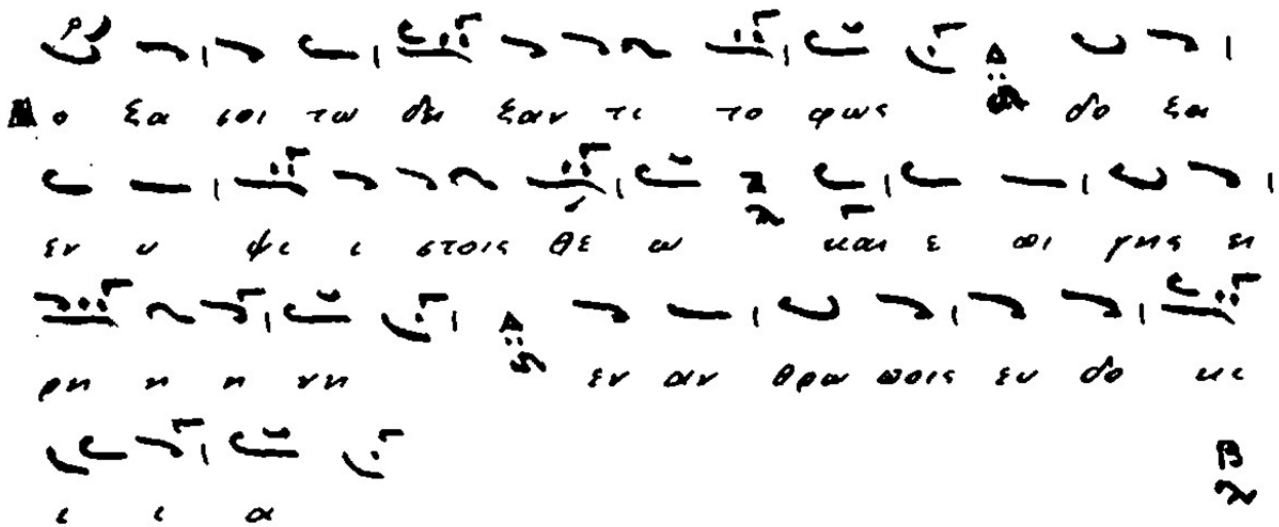 ο ξα σοι τω δει ξαν τι το φως δο ξα
εν υ ψι ι στοις θε ω και ε πι γης ει
ρη η η νη εν αν θρω ποις ευ δο κι
ι ι α